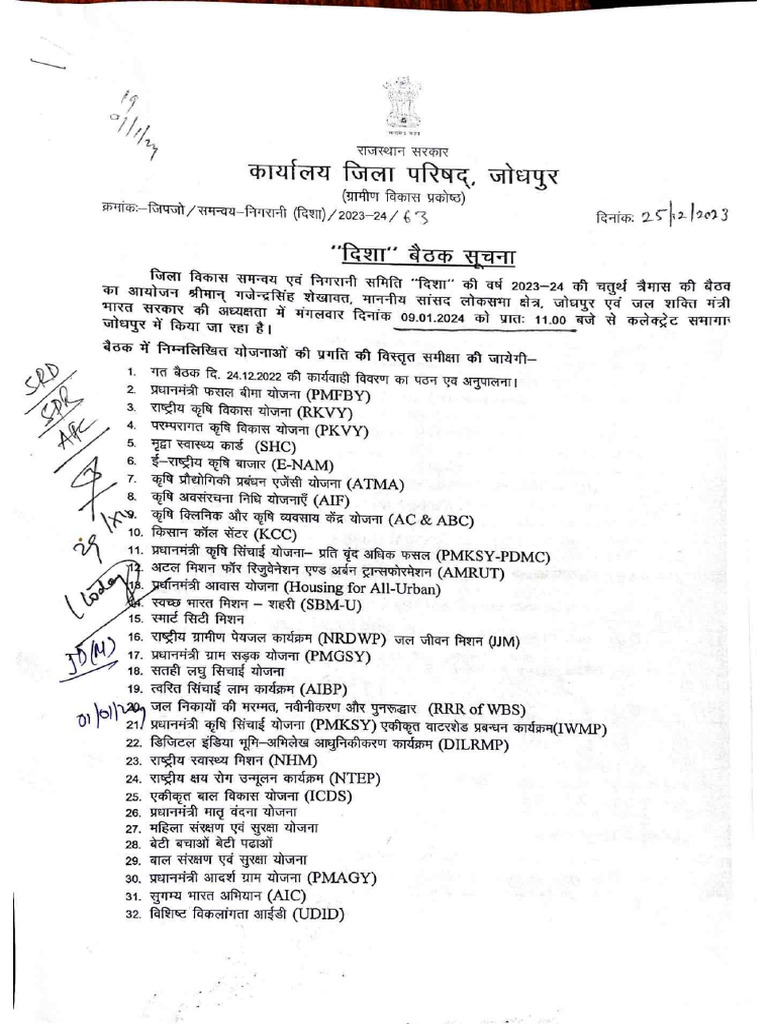 राजस्थान सरकार
कार्यालय जिला परिषद्, जोधपुर
(ग्रामीण विकास प्रकोष्ठ)
क्रमांकः-जिपजो/समन्वय-निगरानी (दिशा)/2023-24/63 दिनांकः 25/12/2023
"दिशा" बैठक सूचना
जिला विकास समन्वय एवं निगरानी समिति "दिशा" की वर्ष 2023-24 की चतुर्थ त्रैमास की बैठक
का आयोजन श्रीमान् गजेन्द्रसिंह शेखावत, माननीय सांसद लोकसभा क्षेत्र, जोधपुर एवं जल शक्ति मंत्री
भारत सरकार की अध्यक्षता में मंगलवार दिनांक 09.01.2024 को प्रातः 11.00 बजे से कलेक्ट्रेट सभागार
जोधपुर में किया जा रहा है।
बैठक में निम्नलिखित योजनाओं की प्रगति की विस्तृत समीक्षा की जायेगी–
1. गत बैठक दि. 24.12.2022 की कार्यवाही विवरण का पठन एव अनुपालना।
2. प्रधानमंत्री फसल बीमा योजना (PMFBY)
3. राष्ट्रीय कृषि विकास योजना (RKVY)
4. परम्परागत कृषि विकास योजना (PKVY)
5. मृद्वा स्वास्थ्य कार्ड (SHC)
6. ई–राष्ट्रीय कृषि बाजार (E-NAM)
7. कृषि प्रौद्योगिकी प्रबंधन एजेंसी योजना (ATMA)
8. कृषि अवसंरचना निधि योजनाएँ (AIF)
9. कृषि क्लिनिक और कृषि व्यवसाय केंद्र योजना (AC & ABC)
10. किसान कॉल सेंटर (KCC)
11. प्रधानमंत्री कृषि सिंचाई योजना– प्रति वृंद अधिक फसल (PMKSY-PDMC)
12. अटल मिशन फॉर रिजुवेनेशन एण्ड अर्बन ट्रान्सफोरमेशन (AMRUT)
13. प्रधानमंत्री आवास योजना (Housing for All-Urban)
14. स्वच्छ भारत मिशन – शहरी (SBM-U)
15. स्मार्ट सिटी मिशन
16. राष्ट्रीय ग्रामीण पेयजल कार्यक्रम (NRDWP) जल जीवन मिशन (JJM)
17. प्रधानमंत्री ग्राम सड़क योजना (PMGSY)
18. सतही लघु सिचाई योजना
19. त्वरित सिंचाई लाम कार्यक्रम (AIBP)
20. जल निकायों की मरम्मत, नवीनीकरण और पुनरूद्धार (RRR of WBS)
21. प्रधानमंत्री कृषि सिंचाई योजना (PMKSY) एकीकृत वाटरशेड प्रबन्धन कार्यक्रम(IWMP)
22. डिजिटल इंडिया भूमि–अभिलेख आधुनिकीकरण कार्यक्रम (DILRMP)
23. राष्ट्रीय स्वास्थ्य मिशन (NHM)
24. राष्ट्रीय क्षय रोग उन्मूलन कार्यक्रम (NTEP)
25. एकीकृत बाल विकास योजना (ICDS)
26. प्रधानमंत्री मातृ वंदना योजना
27. महिला संरक्षण एवं सुरक्षा योजना
28. बेटी बचाओं बेटी पढाओं
29. बाल संरक्षण एवं सुरक्षा योजना
30. प्रधानमंत्री आदर्श ग्राम योजना (PMAGY)
31. सुगम्य भारत अभियान (AIC)
32. विशिष्ट विकलांगता आईडी (UDID)
19
SRD
SPR
today
JD(M)